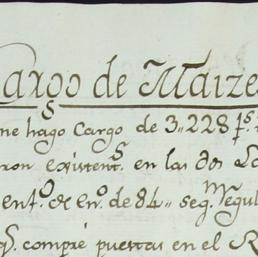 Cargo de Maize
me hago Cargo de 3"228 ps.
ron existents. en las dos
en fo. de eno. de 84" seg.
qs. compré puestas en el R